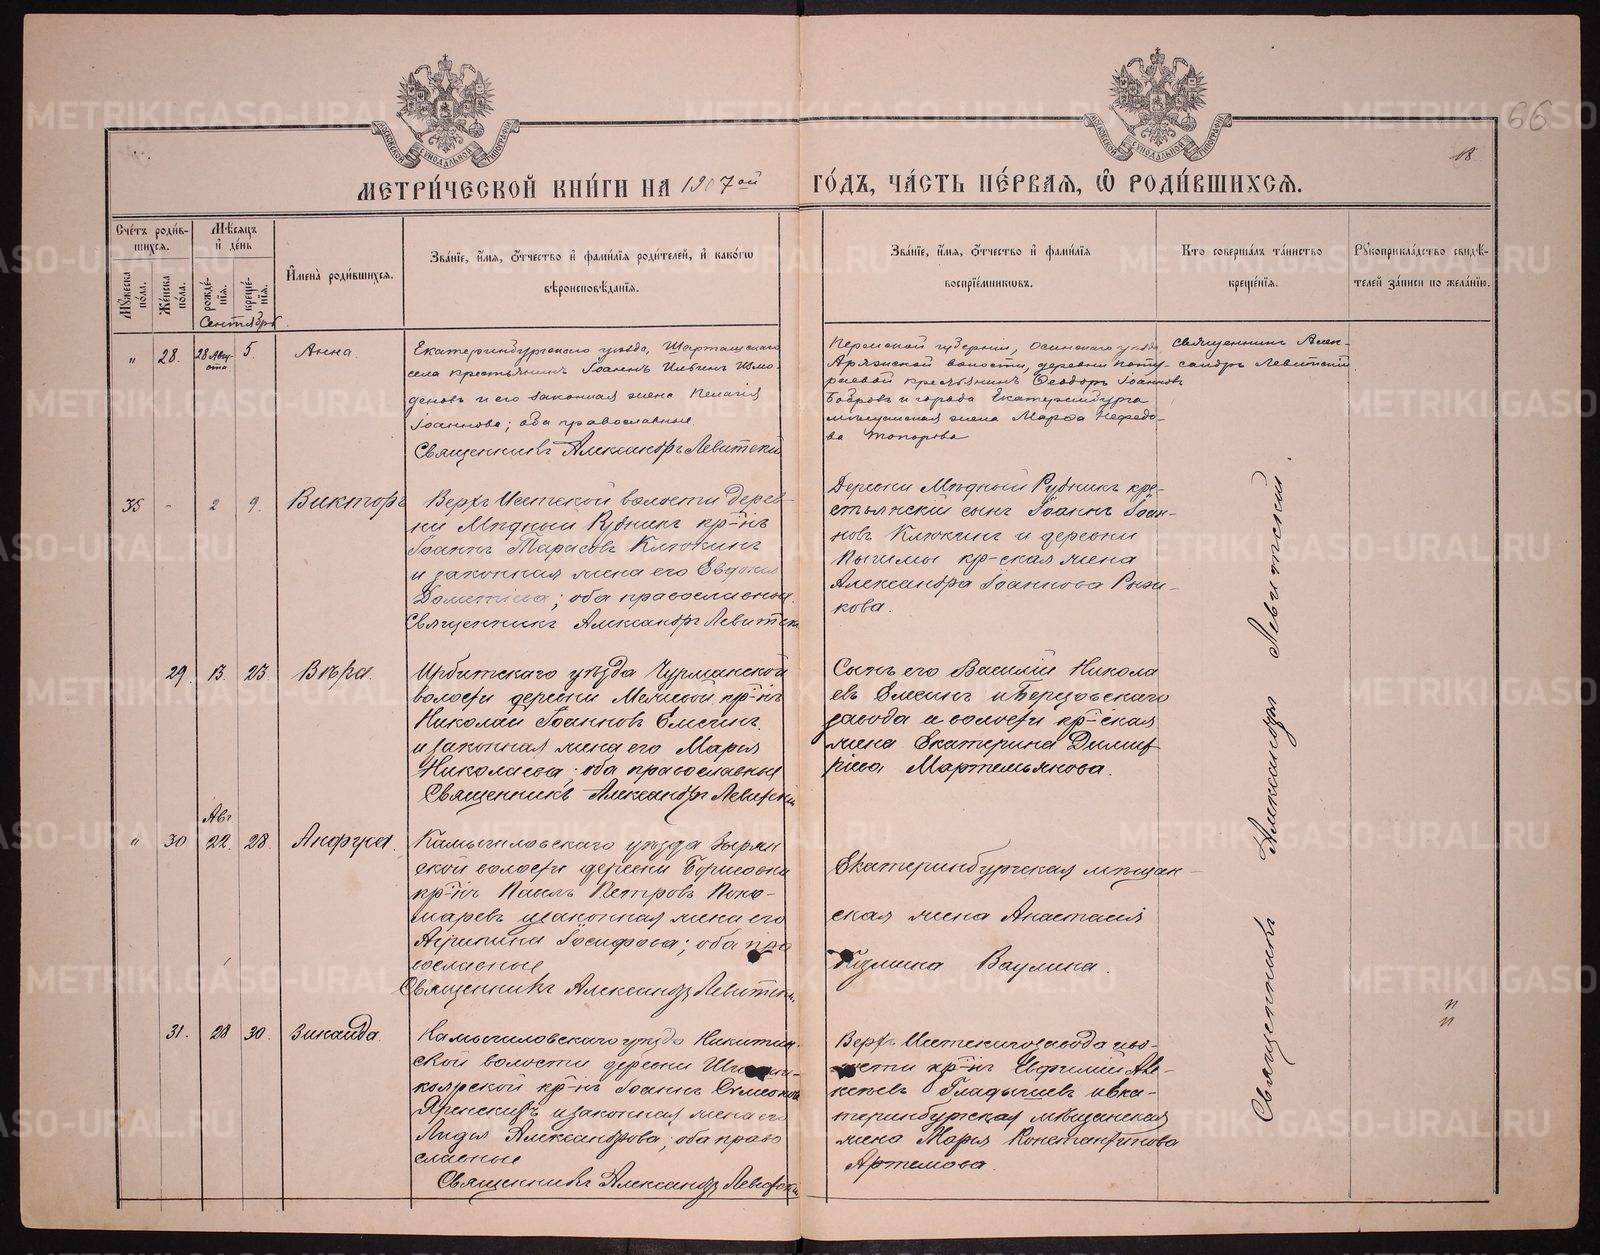 66
18
МОСКОВСКОЙ СѴНОДАЛЬНОЙ ТИПОГРАФІИ
МОСКОВСКОЙ СѴНОДАЛЬНОЙ ТИПОГРАФІИ
МЕТРИ́ЧЕСКОЙ КНИ́ГИ НА 1907ой ГО́ДЪ, ЧА́СТЬ ПЕ́РВАЯ, Ѡ РОДИ́ВШИХСЯ.
Сче́тъ роди́в-
шихся.
Мѣ́сяцъ
и де́нь
Мꙋ́жеска
по́ла.
Же́нска
по́ла.
рожде́-
нія.
креще́-
нія.
Имена̀ роди́вшихся.
Зва́ніе, и́мя, о́тчество и фами́лія роди́телей, и како́гѡ
вѣроисповѣ́данія.
Зва́ніе, и́мя, о́тчество и фами́лія
воспріе́мникѡвъ.
Кто соверша́лъ та́инство
креще́нія.
Рꙋкоприкла́дство свидѣ́-
телей за́писи по жела́нію.
Сентябрь.
" 28. 28 Авгу-
ста 5. Анна.
Екатеринбургскаго уѣзда, Шарташскаго
села крестьянинъ Іоаннъ Ильинъ Измо-
деновъ и его законная жена Пелагія
Іоаннова; оба православные
Священникъ Александръ Левитскій
Пермской губерніи, Осинскаго уѣзда
Аряжской волости, деревни
крестьянинъ Ѳеодоръ Іоанновъ
Бобровъ и города Екатеринбурга
мѣщанская жена Марѳа Нефедо-
ва Топорова
священникъ Алек-
сандръ Левитскій
35 - 2 9. Викторъ
Верхъ Исетской волости дерев-
ни Мѣдный Рудникъ кр-нъ
Іоаннъ Тарасовъ Клюкинъ
и законная жена его Евдокія
Дометіева; оба православные.
Священникъ Александръ Левитскій
Деревни Мѣдный Рудникъ кре-
стьянскій сынъ Іоаннъ Іоан-
новъ Клюкинъ и деревни
Пышмы кр-ская жена
Александра Іоаннова Рыжи-
кова.
29. 13. 23. Вѣра.
Ирбитскаго уѣзда Чурманской
волости деревни кр-нъ
Николай Іоанновъ Елесинъ
и законная жена его Марія
Николаева; оба православные
Священникъ Александръ Левитскій
Сынъ его Василій Никола
евъ Елесинъ и Березовскаго
завода и волости кр-ская
жена Екатерина Димит
ріева Мартемьянова.
Авг.
" 30 22. 28. Анфуса.
Камышловскаго уѣзда Зырян
ской волости деревни Борисовы
кр-нъ Павелъ Петровъ Поно-
маревъ и законная жена его
Агрипина Іосифова; оба пра
вославные
Священникъ Александръ Левитскій
Екатеринбургская мѣщан-
ская жена Анастасія
Козмина Ваулина.
31. 28 30. Зинаида.
Камышловскаго уѣзда Никитин-
ской волости деревни
кр-нъ Іоаннъ Симеоновъ
и законная жена его
Лидія Александрова, оба право
славные
Священникъ Александръ Левитскій
Верхъ Исетскаго завода и во-
лости кр-нъ Евфимій Але-
ксѣевъ Гладышевъ и ека-
теринбургская мѣщанская
жена Марія Константинова
Артемова.
Священникъ Александръ Левитскій.
"
"
METRIKI.GASO-URAL.RU